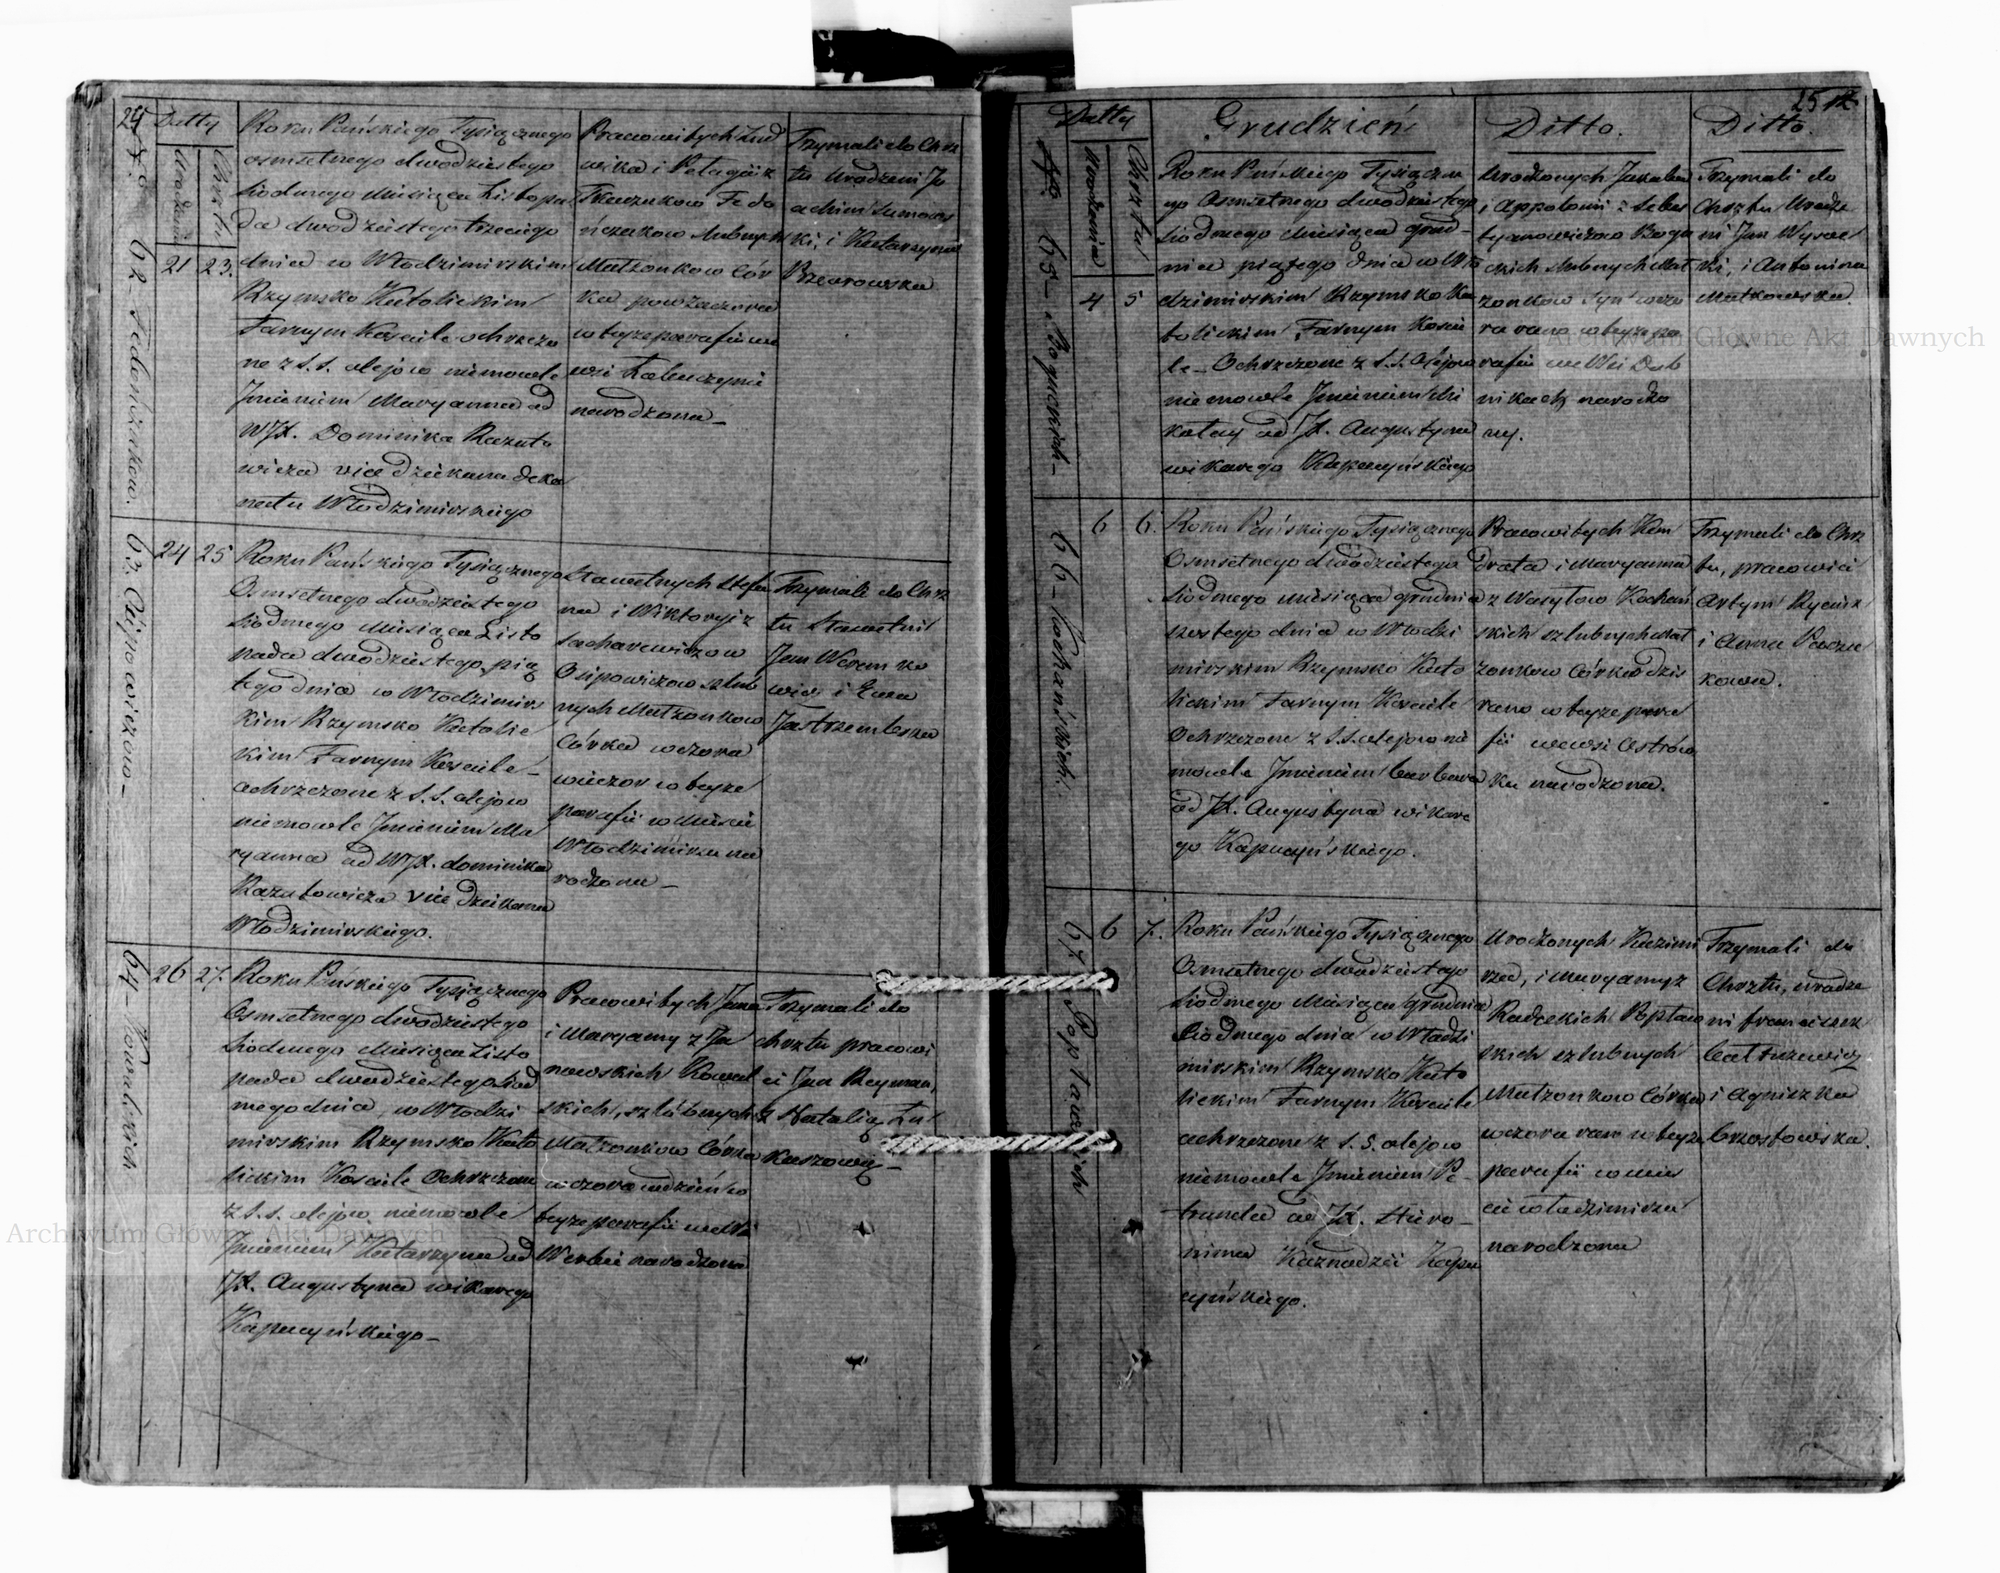 24
Datty
Urodzenia
Chrztu
No 62 Fedończuków.
21 23.
Roku Pańskiego Tysiącznego
osmsetnego dwódziestego
siodmego Miesiąca Listopa
da dwodziestego trzeciego
dnia w Włodzimirskim
Rzymsko Katolickim
Farnym Kosciele ochrzczo
no z S. S. olejow niemowle
Jmieniem Maryanna od
WJX. Dominika Kazuto
wicza vice dziekana deka
natu Włodzimirskiego
Pracowitych Lud
wika i Pelagii z
Tkaczukow Fedo
ńczukow slubnych
Małzonkow Cór
ka powzaczora
w teyze parafii we
wsi
narodzona
Trzymali do Chrz
tu Urodzeni Jo
achim
ki, i Katarzyna
63. Osipowiczow
24 25
Roku Pańskiego Tysiącznego
Osmsetnego dwodziestego
siodmego Miesiąca Listo
pada dwodziestego pią
tego dnia w Włodzimirs
kim Rzymsko Katolic
kim Farnym Kosciele
ochrzczone z S. S. olejow
niemowle Jmieniem Ma
ryanna od WJX. dominika
Kazutowicza vice dziekana
Włodzimirskiego.
Sławetnych Stefa
na i Wiktoryi z
Sacharewiczow
Osipowiczow szlub
nych Małzonkow
Córka wczora
wieczor w teyze
parafii w Miescie
Włodzimirzu na
rodzona
Trzymali do Chrz
tu Sławetni
Jan Werem ko
wicz i Ewa
Jastrzembska
64 Kowalskich
26 27.
Roku Pańskiego Tysiącznego
Osmsetnego dwodziestego
siodmego Miesiąca Listo
pada dwodziestego siod
mego dnia, w Włodzi
mirskim Rzymsko Kato
lickim Kosciele Ochrzczone
z S. S. olejow niemowle
Jmieniem Katarzyna od
JX. Augustyna wikarego
Kapucyńskiego
Pracowitych Jana
i Maryanny z Ja
nowskich Kowal
skich, szlubnych
Małzonkow Córka
wczora wdzień w
teyze parafii we Wsi
Werbie narodzona
Trzymali do
chrztu pracowi
ci Jan Reyman,
z Natalią Łu
kaszową
25
Datty
Urodzenia
Chrztu
Grudzień
Ditto.
Ditto.
No 65 Boguckich
4 5
Roku Pańskiego Tysiączne
go Osmsetnego dwodziestego
siodmego Miesiąca grud
nia piątego dnia w Wło
dzimirskim Rzymsko Ka
tolickim Farnym Koscie
le Ochrzczone z S. S. Olejow
niemowle Jmieniem Mi
kołay od JX. Augustyna
wikarego Kapucyńskiego
Urodzonych Jakuba
i Appolonii z Sebas
tyanowiczow Bogu
ckich slubnych Mał
zonkow Syn wczo
ra rano w teyze pa
rafii we Wsi Dub
nikach narodzo
ny.
Trzymali do
Chrztu Urodze
ni Jan Wysoc
ki, i Antonina
Małkowska.
66 Kochańskich
6 6.
Roku Pańskiego Tysiącznego
Osmsetnego dwodziestego
siodmego miesiąca grudnia
szostego dnia w Włodzi
mirskim Rzymsko Kato
lickim Farnym Kosciele
Ochrzczone z S. S. olejow nie
mowle Jmieniem barbara
od JX. Augustyna wikare
go Kapucyńskiego.
Pracowitych Kon
drata i Maryanna
z Wasylow Kochań
skich szlubnych Mał
zonkow Córka dzis
rano w teyze para
fii wewsi Ostrów
ku narodzona.
Trzymali do Chrz
tu, pracowici
Artym
i Anna
kowa.
67 Popławskich
6 7.
Roku Pańskiego Tysiącznego
Osmsetnego dwodziestego
siodmego Miesiąca Grudnia
Siodmego dnia w Włodzi
mirskim Rzymsko Kato
lickim Farnym Kosciele
ochrzczone z S. S. olejow
niemowle Jmieniem Pe
tronela od JX. Hiero
nima Kaznodzii Kapu
cyńskiego.
Urodzonych Kazimi
rza, i Maryanny z
Radeckich Popław
skich szlubnych
Małzonkow Córka
wczora rano w teyze
parafii w mie
scie włodzimirzu
narodzona
Trzymali do
Chrztu, urodze
ni franciszek
i Agniszka
brzostowska.
Archiwum Główne Akt Dawnych
Archiwum Główne Akt Dawnych